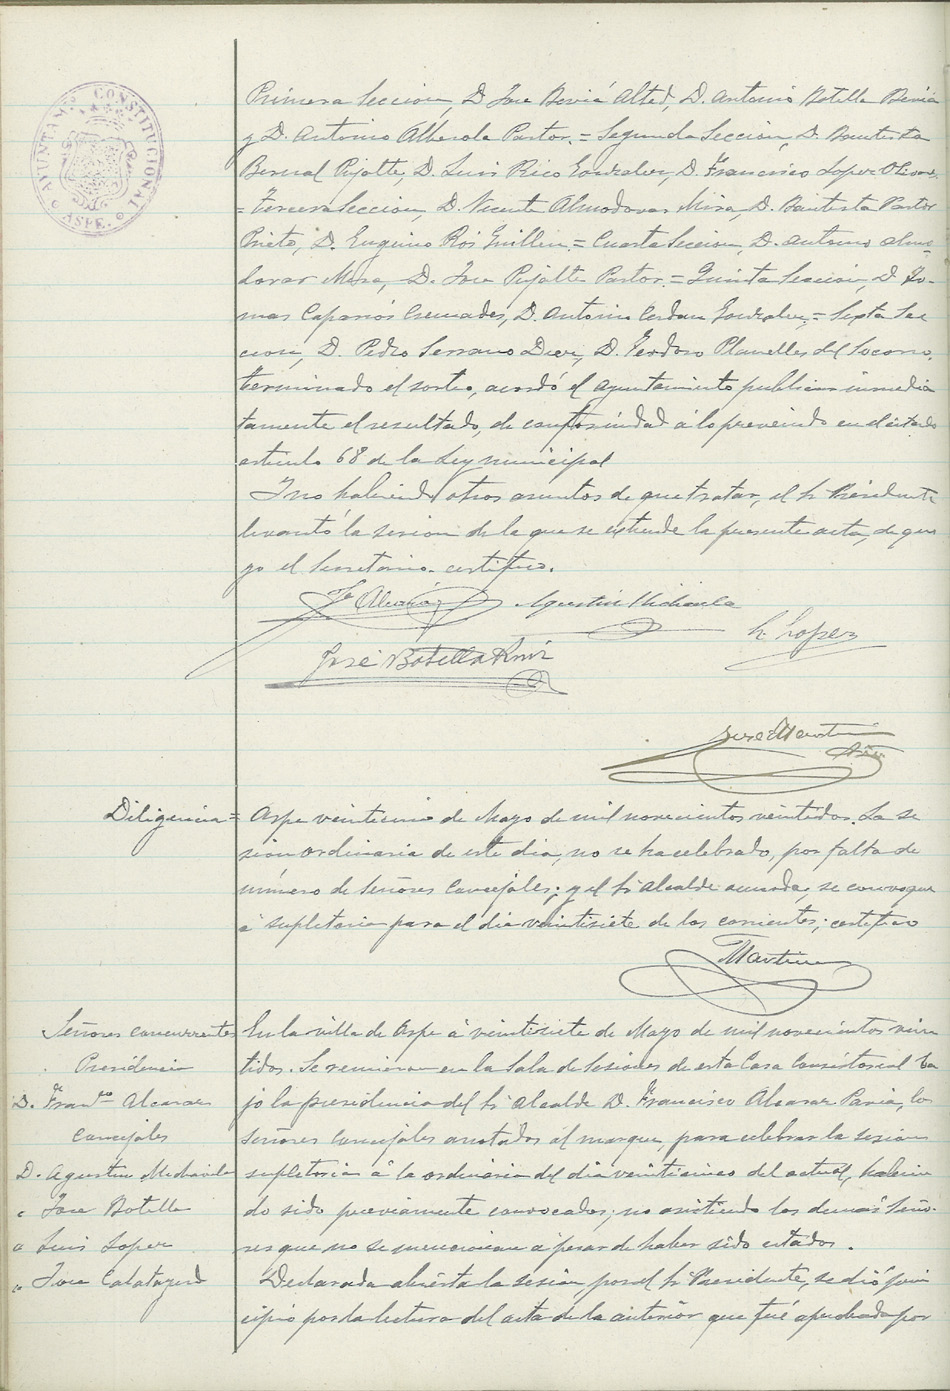 AYUNTAM.TO CONSTITUCIONAL
ASPE.
Primera Seccion, D. Jose Beviá Alted, D. Antonio Botella Beviá
y D. Antonio Alberola Pastor. = Segunda Seccion, D. Bautista
Bernal Pujalte, D. Luis Rico Gonzalez, D. Francisco Lopez Olivares.
= Tercera Seccion, D. Vicente Almodovar Mira, D. Bautista Pastor
Prieto, D. Eugenio Ros Guillen = Cuarta Seccion, D. Antonio Almo-
dovar Mira, D. Jose Pujalte Pastor. = Quinta Seccion, D. To-
mas Caparrós Cremades, D. Antonio Cerdan Gonzalez = Sexta Sec
cion, D. Pedro Serrano Diez, D. Teodoro Planelles del Socorro.
Terminado el sorteo, acordó el ayuntamiento publicar inmedia
tamente el resultado, de conformidad á lo prevenido en el citado
articulo 68 de la Ley municipal
Y no habiendo otros asuntos de que tratar, el Sr Presidente
levantó la sesion de la que se estiende la presente acta, de que
yo el Secretario certifico.
Fo Alcaraz Agustin Michavila
L. Lopez
José Botella Ruiz
Jose Martin
Diligencia = Aspe veinticinco de Mayo de mil novecientos veintidos. La se
sion ordinaria de este dia, no se ha celebrado, por falta de
número de Señores Concejales; y el Sr Alcalde acuerda, se convoque
á supletoria para el dia veintisiete de los corrientes; certifico
Martin
Señores concurrentes
Presidencia
D. Franco Alcaraz
Concejales
D. Agustin Michavila
" Jose Botella
" Luis Lopez
" Jose Calatayud
En la villa de Aspe á veintisiete de Mayo de mil novecientos vein
tidos. Se reunieron en la Sala de Sesiones de esta Casa Consistorial ba
jo la presidencia del Sr Alcalde D. Francisco Alcaraz Pavia, los
Señores Concejales anotados al margen, para celebrar la sesion
supletoria á la ordinaria del dia veinticinco del actual, habien
do sido previamente convocados; no asistiendo los demás Seño-
res que no se mencionan apesar de haber sido citados.
Declarada abierta la sesion por el Sr Presidente, se dió prin
cipio por la lectura del acta de la anterior que fué aprobada por